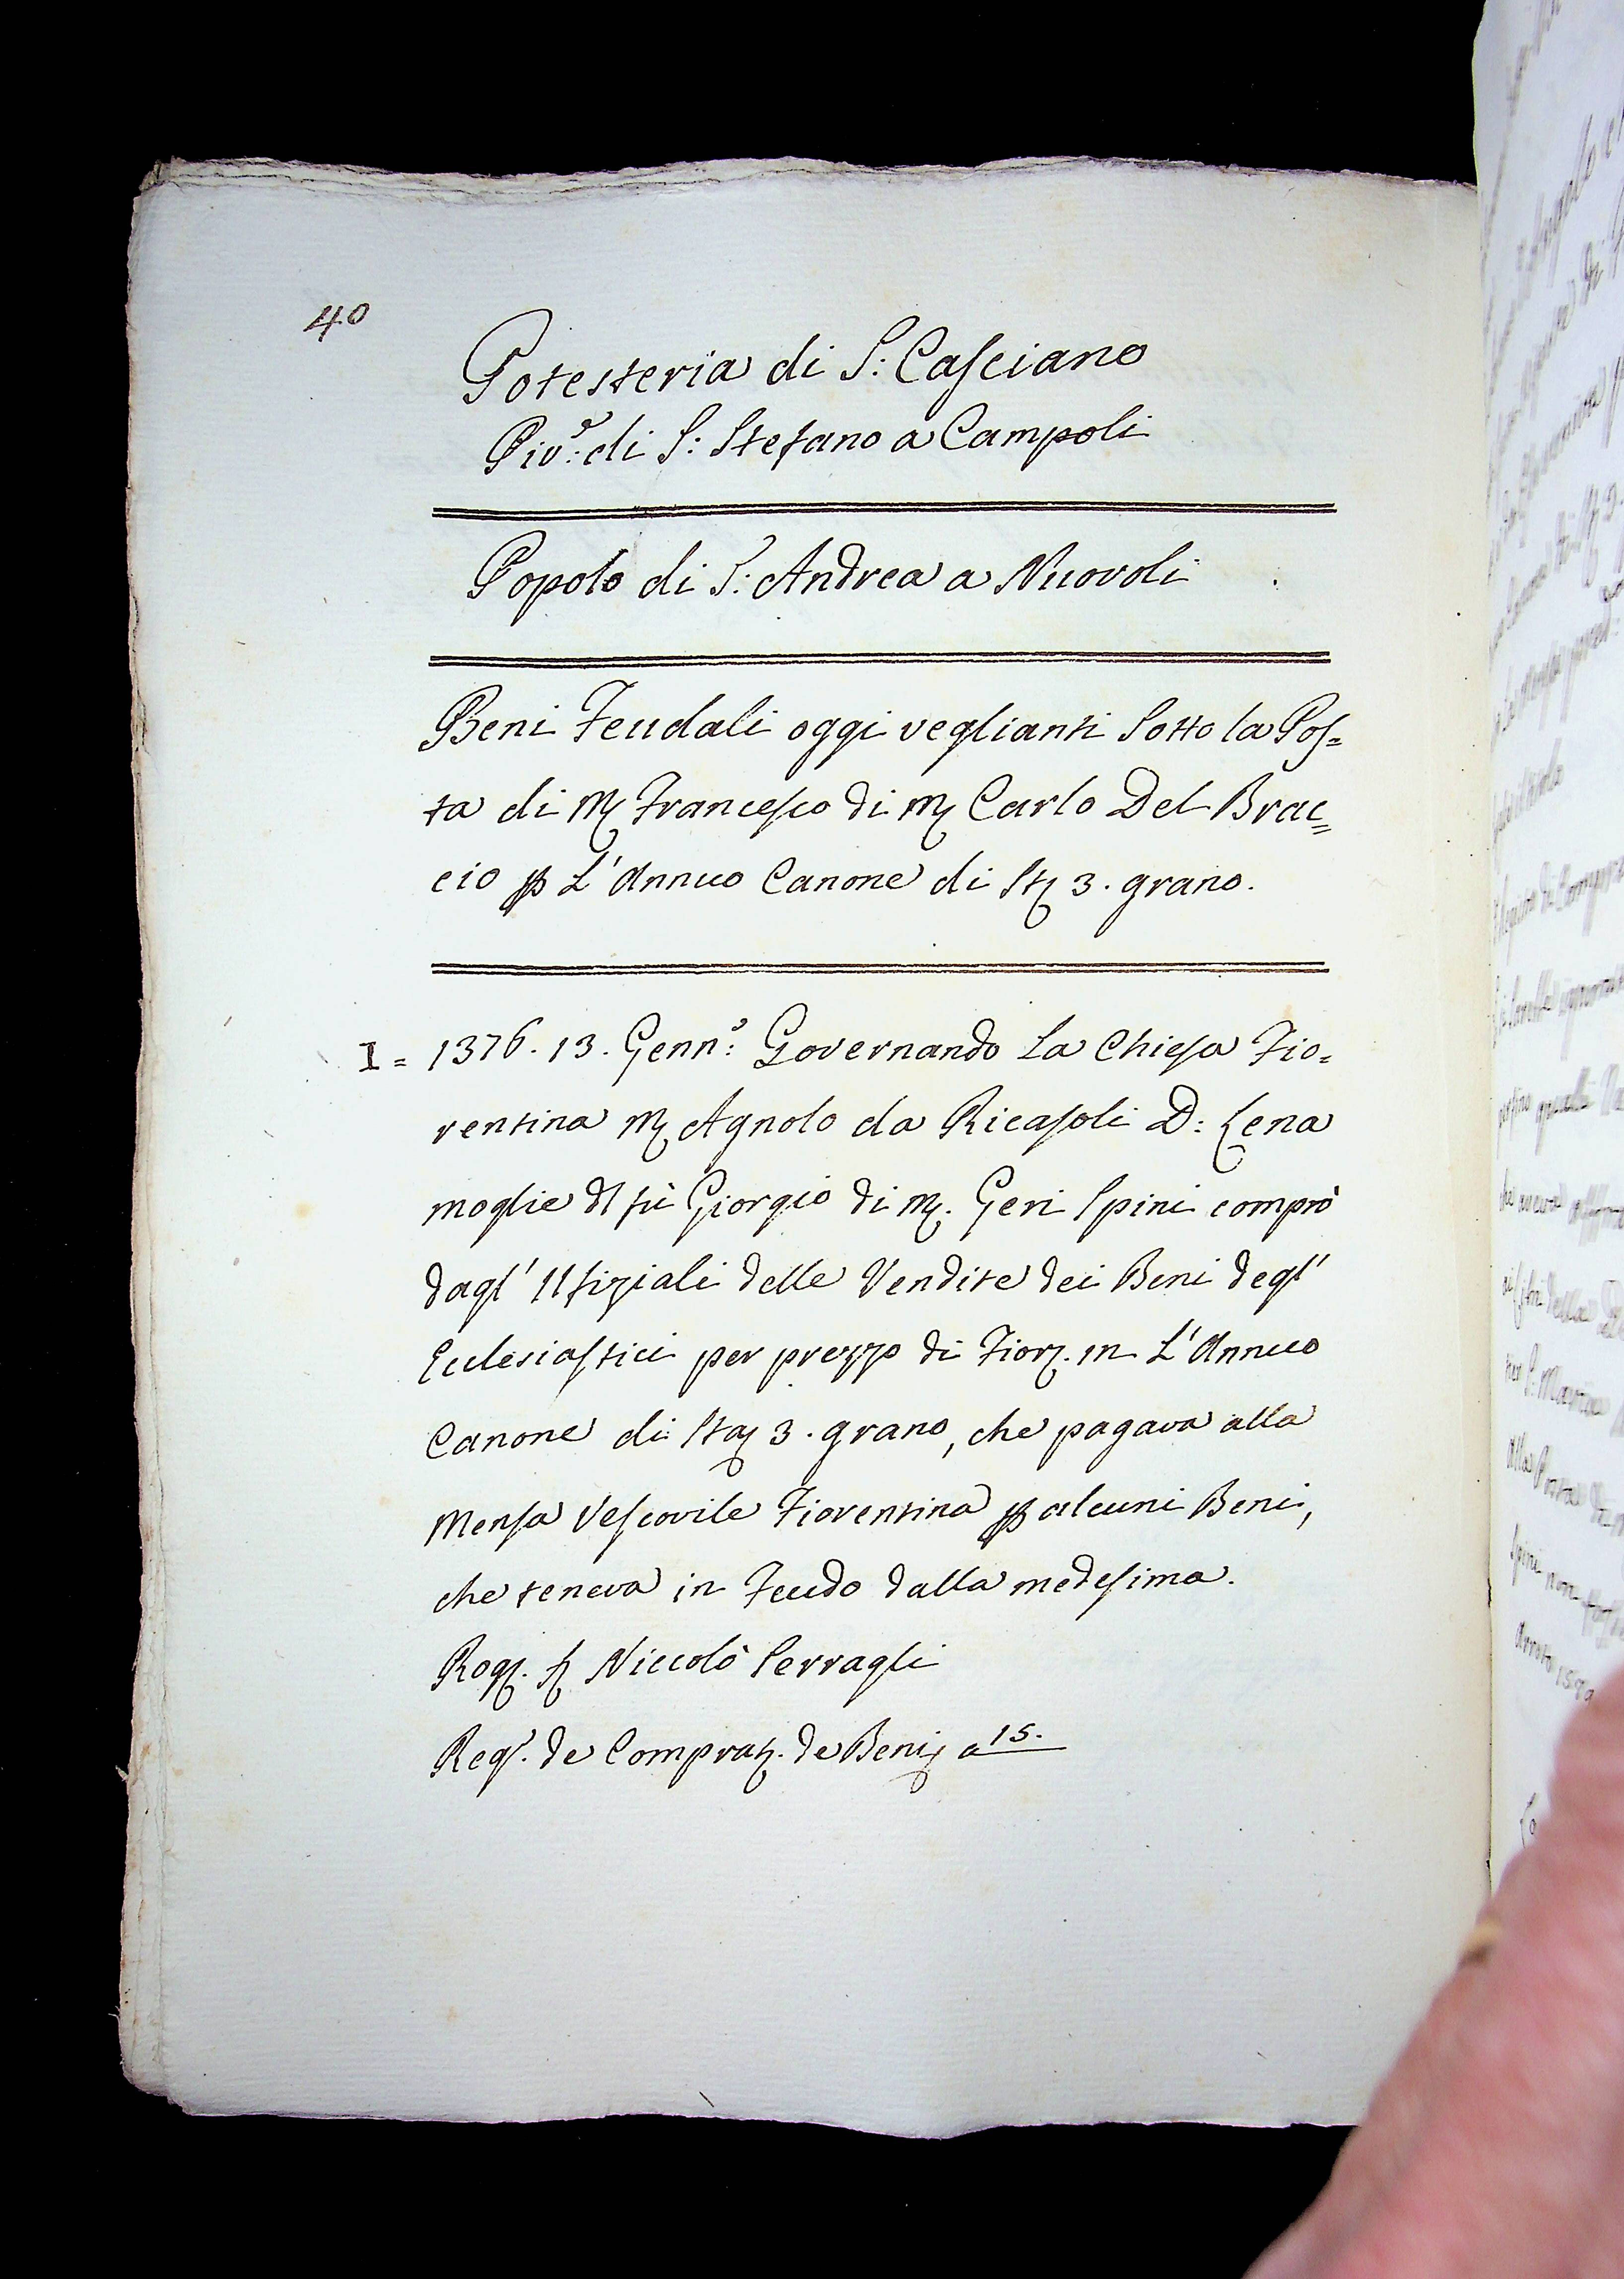 40
Potesteria di S: Casciano
Piv.e di S: Stefano a Campoli
Popolo di S: Andrea a Nuovoli
Beni Feudali oggi veglianti Sotto la Pos=
ta di M. Francesco di M. Carlo Del Brac=
cio p L'Annuo Canone di Sta 3. grano.
I = 1376. 13. Genn.o: Governando La Chiesa Fio=
rentina M. Agnolo da Ricasoli D: Lena
moglie dl fù Giorgio di M. Geri Spini comprò
dagl' Ufiziali delle Vendite dei Beni degl'
Ecclesiastici per prezzo di Fior. in L'Annuo
Canone di Sta 3. grano, che pagava alla
Mensa Vescovile Fiorentina p alcuni Beni,
che teneva in Feudo dalla medesima.
Rog. S. Niccolò Serragli
Reg. de Comprat. de Beni a 15.